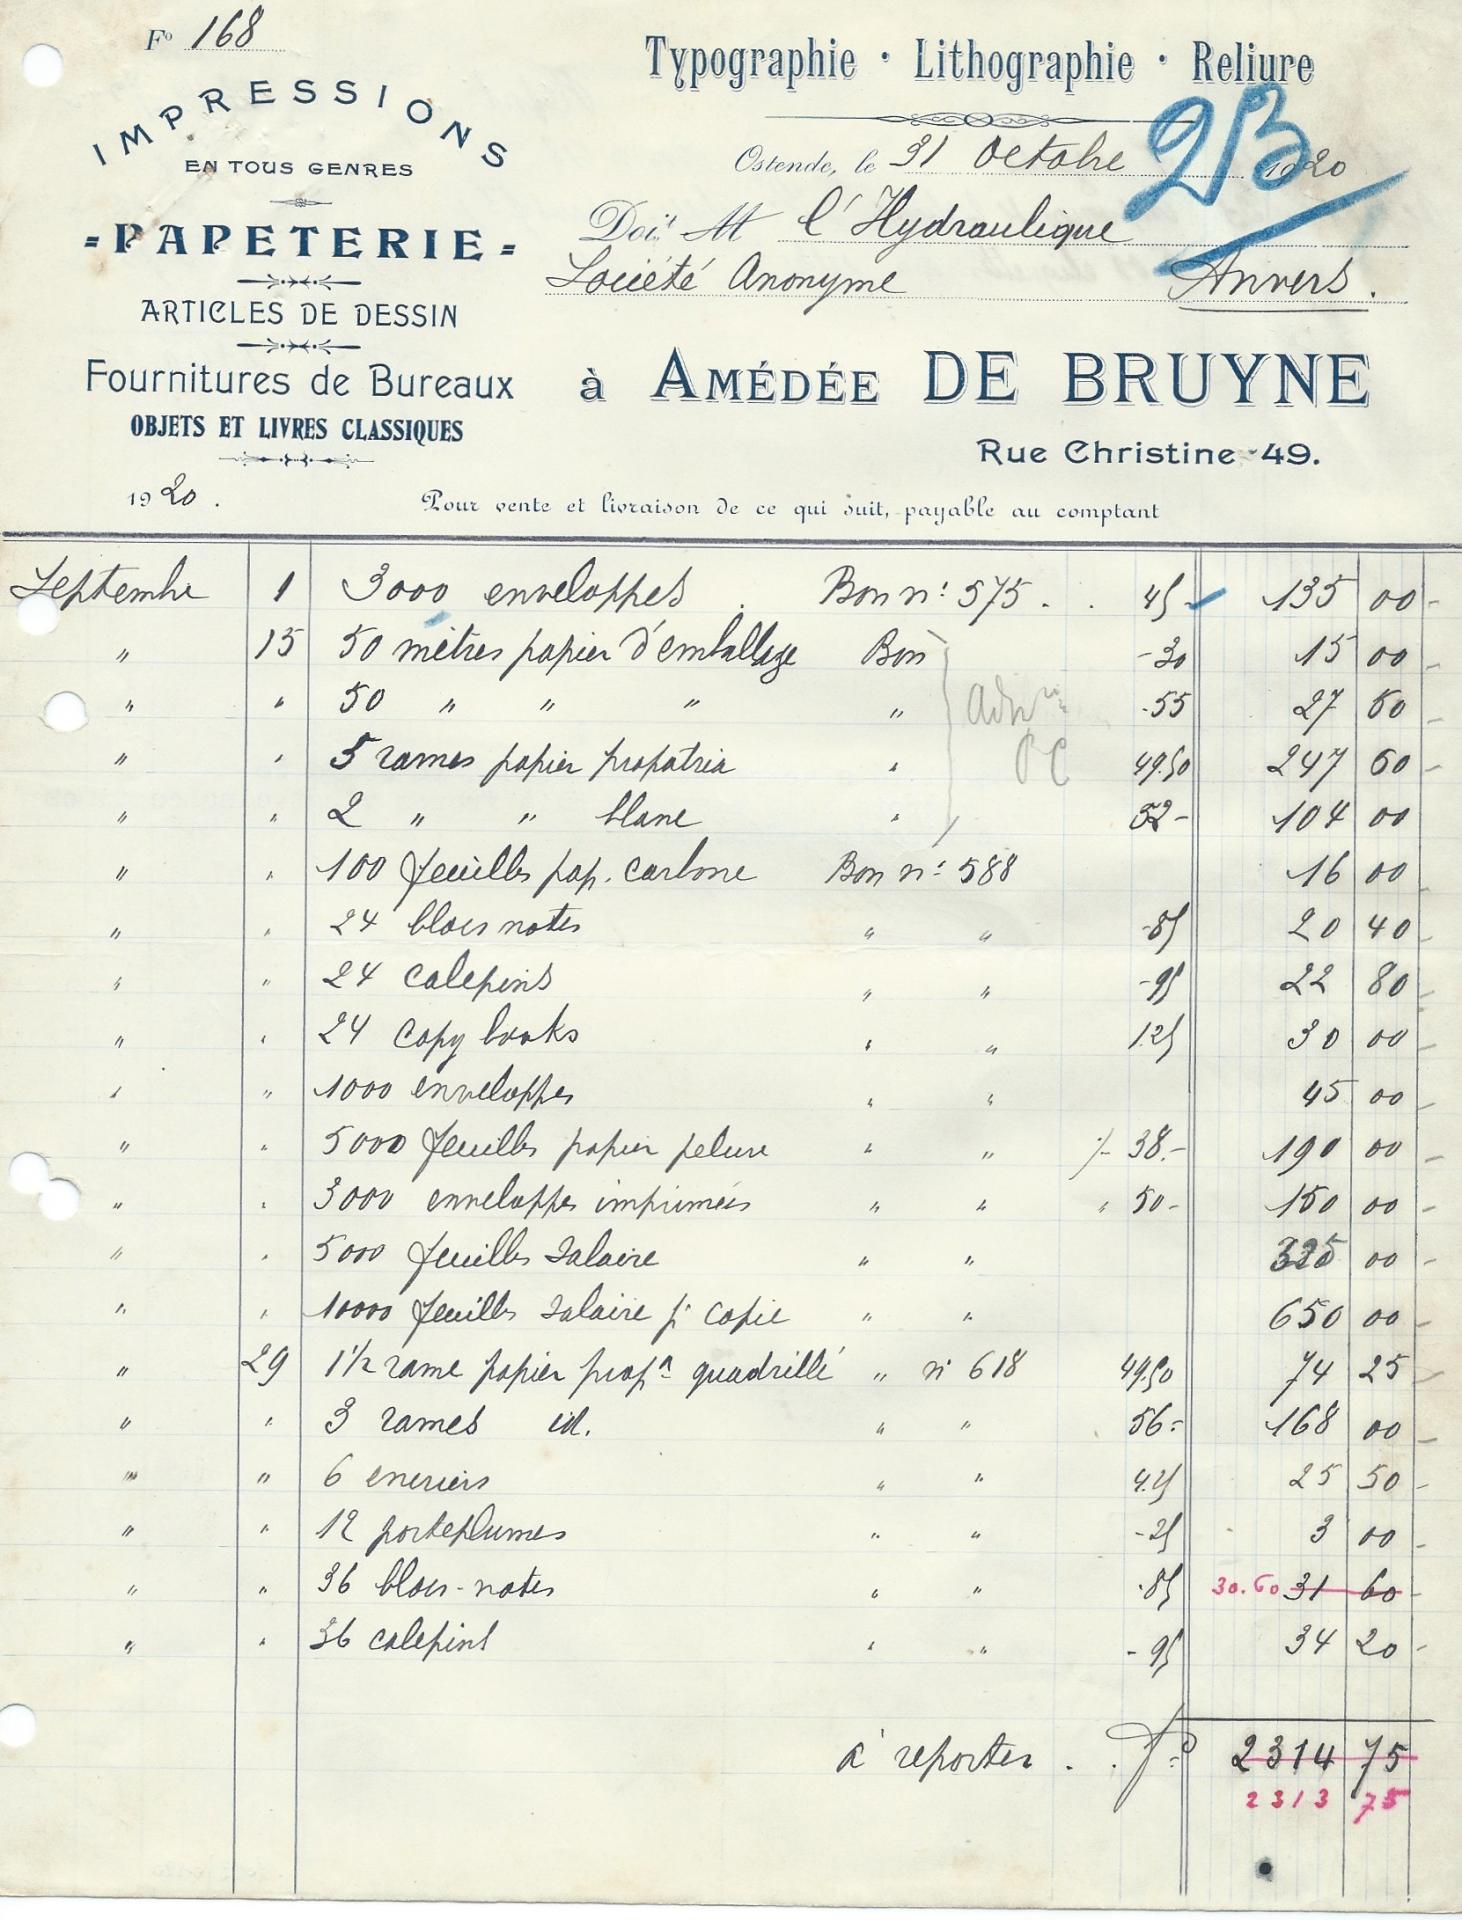 Fº 168
IMPRESSIONS
EN TOUS GENRES
PAPETERIE
ARTICLES DE DESSIN
Fournitures de Bureaux
OBJETS ET LIVRES CLASSIQUES
Typographie · Lithographie · Reliure
Ostende, le 31 Octobre 1920
Doit M l'Hydraulique
Société Anonyme Anvers.
à AMÉDÉE DE BRUYNE
Rue Christine 49.
1920.
Pour vente et livraison de ce qui suit, payable au comptant
Septembre 1 3000 enveloppes . Bon nº 575 . . 45- 135 00-
" 15 50 mètres papier d'emballage Bon -30 15 00-
" " 50 " " " " -55 27 50-
" " 5 rames papier propatria " 49.50 247 50-
" " 2 " " blanc " 52- 104 00
" " 100 feuilles pap. carbone Bon nº 588 16 00-
" " 24 blocs notes " " -85 20 40-
" " 24 calepins " " -95 22 80-
" " 24 copy books " " 1.25 30 00-
" " 1000 enveloppes " " 45 00-
" " 5000 feuilles papier pelure " " 38.- 190 00-
" " 3000 enveloppes imprimées " " " 50- 150 00-
" " 5000 feuilles salaire " " 325 00-
" " 10000 feuilles salaire pr copie " " 650 00-
" 29 1 1/2 rame papier propª quadrillé " nº 618 49.50 74 25-
" " 3 rames id. " " 56- 168 00-
" " 6 encriers " " 4.25 25 50-
" " 12 porteplumes " " -25 3 00-
" " 36 blocs-notes " " -85 30.60 31 60-
" " 36 calepins " " -95 34 20-
à reporter . . Fº 2314 75
2313 75